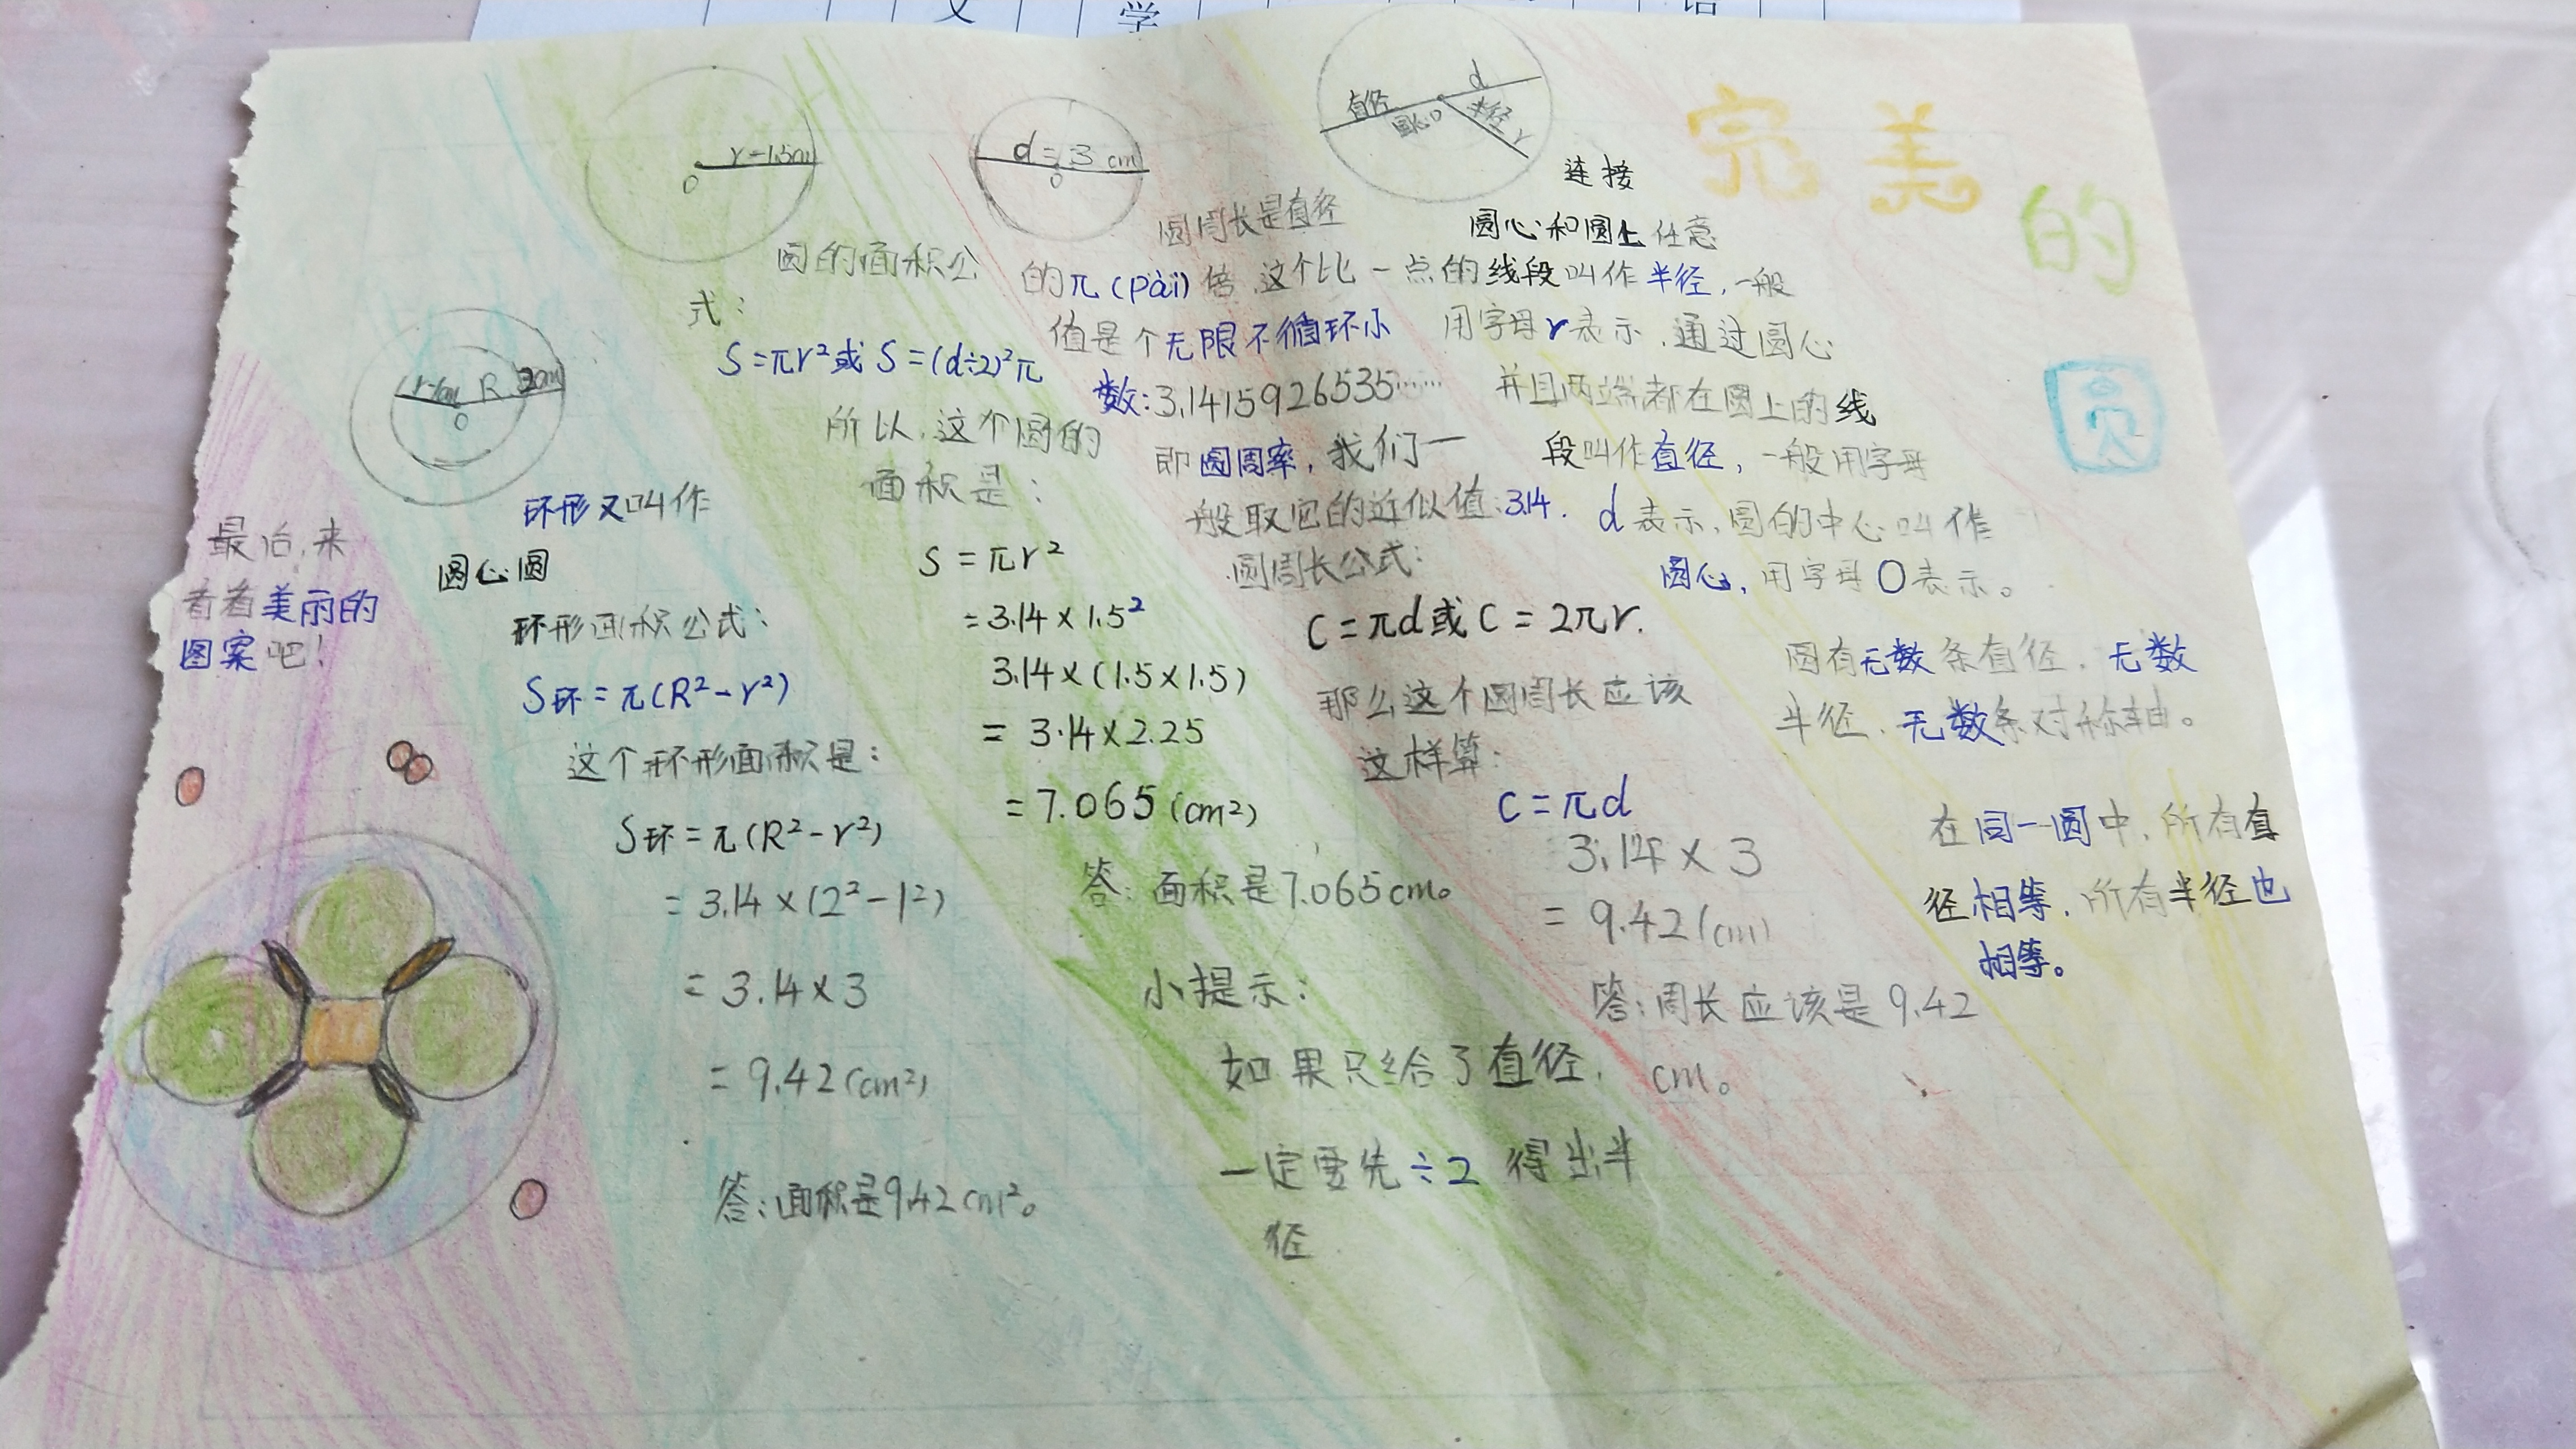 文 学 语
完美
的
圆
直径 d
圆心O 半径 r
连接
圆心和圆上任意
一点的线段叫作半径,一般
用字母r表示,通过圆心
并且两端都在圆上的线
段叫作直径,一般用字母
d表示,圆的中心叫作
圆心,用字母O表示。
圆有无数条直径,无数
半径,无数条对称轴。
在同一圆中,所有直
径相等,所有半径也
相等。
d=3cm
O
圆周长是直径
的π(pài)倍,这个比
值是个无限不循环小
数:3.1415926535……
即圆周率,我们一
般取它的近似值:3.14.
圆周长公式:
C=πd或C=2πr.
那么这个圆周长应该
这样算:
C=πd
3.14×3
=9.42(cm)
答:周长应该是9.42
cm。
r=1.5cm
O
圆的面积公
式:
S=πr²或S=(d÷2)²π
所以,这个圆的
面积是:
S=πr²
=3.14×1.5²
3.14×(1.5×1.5)
=3.14×2.25
=7.065(cm²)
答:面积是7.065cm。
小提示:
如果只给了直径,
一定要先÷2得出半
径
r=1cm R 2cm
O
环形又叫作
圆心圆
环形面积公式:
S环=π(R²-r²)
这个环形面积是:
S环=π(R²-r²)
=3.14×(2²-1²)
=3.14×3
=9.42(cm²)
答:面积是9.42cm²。
最后,来
看看美丽的
图案吧!